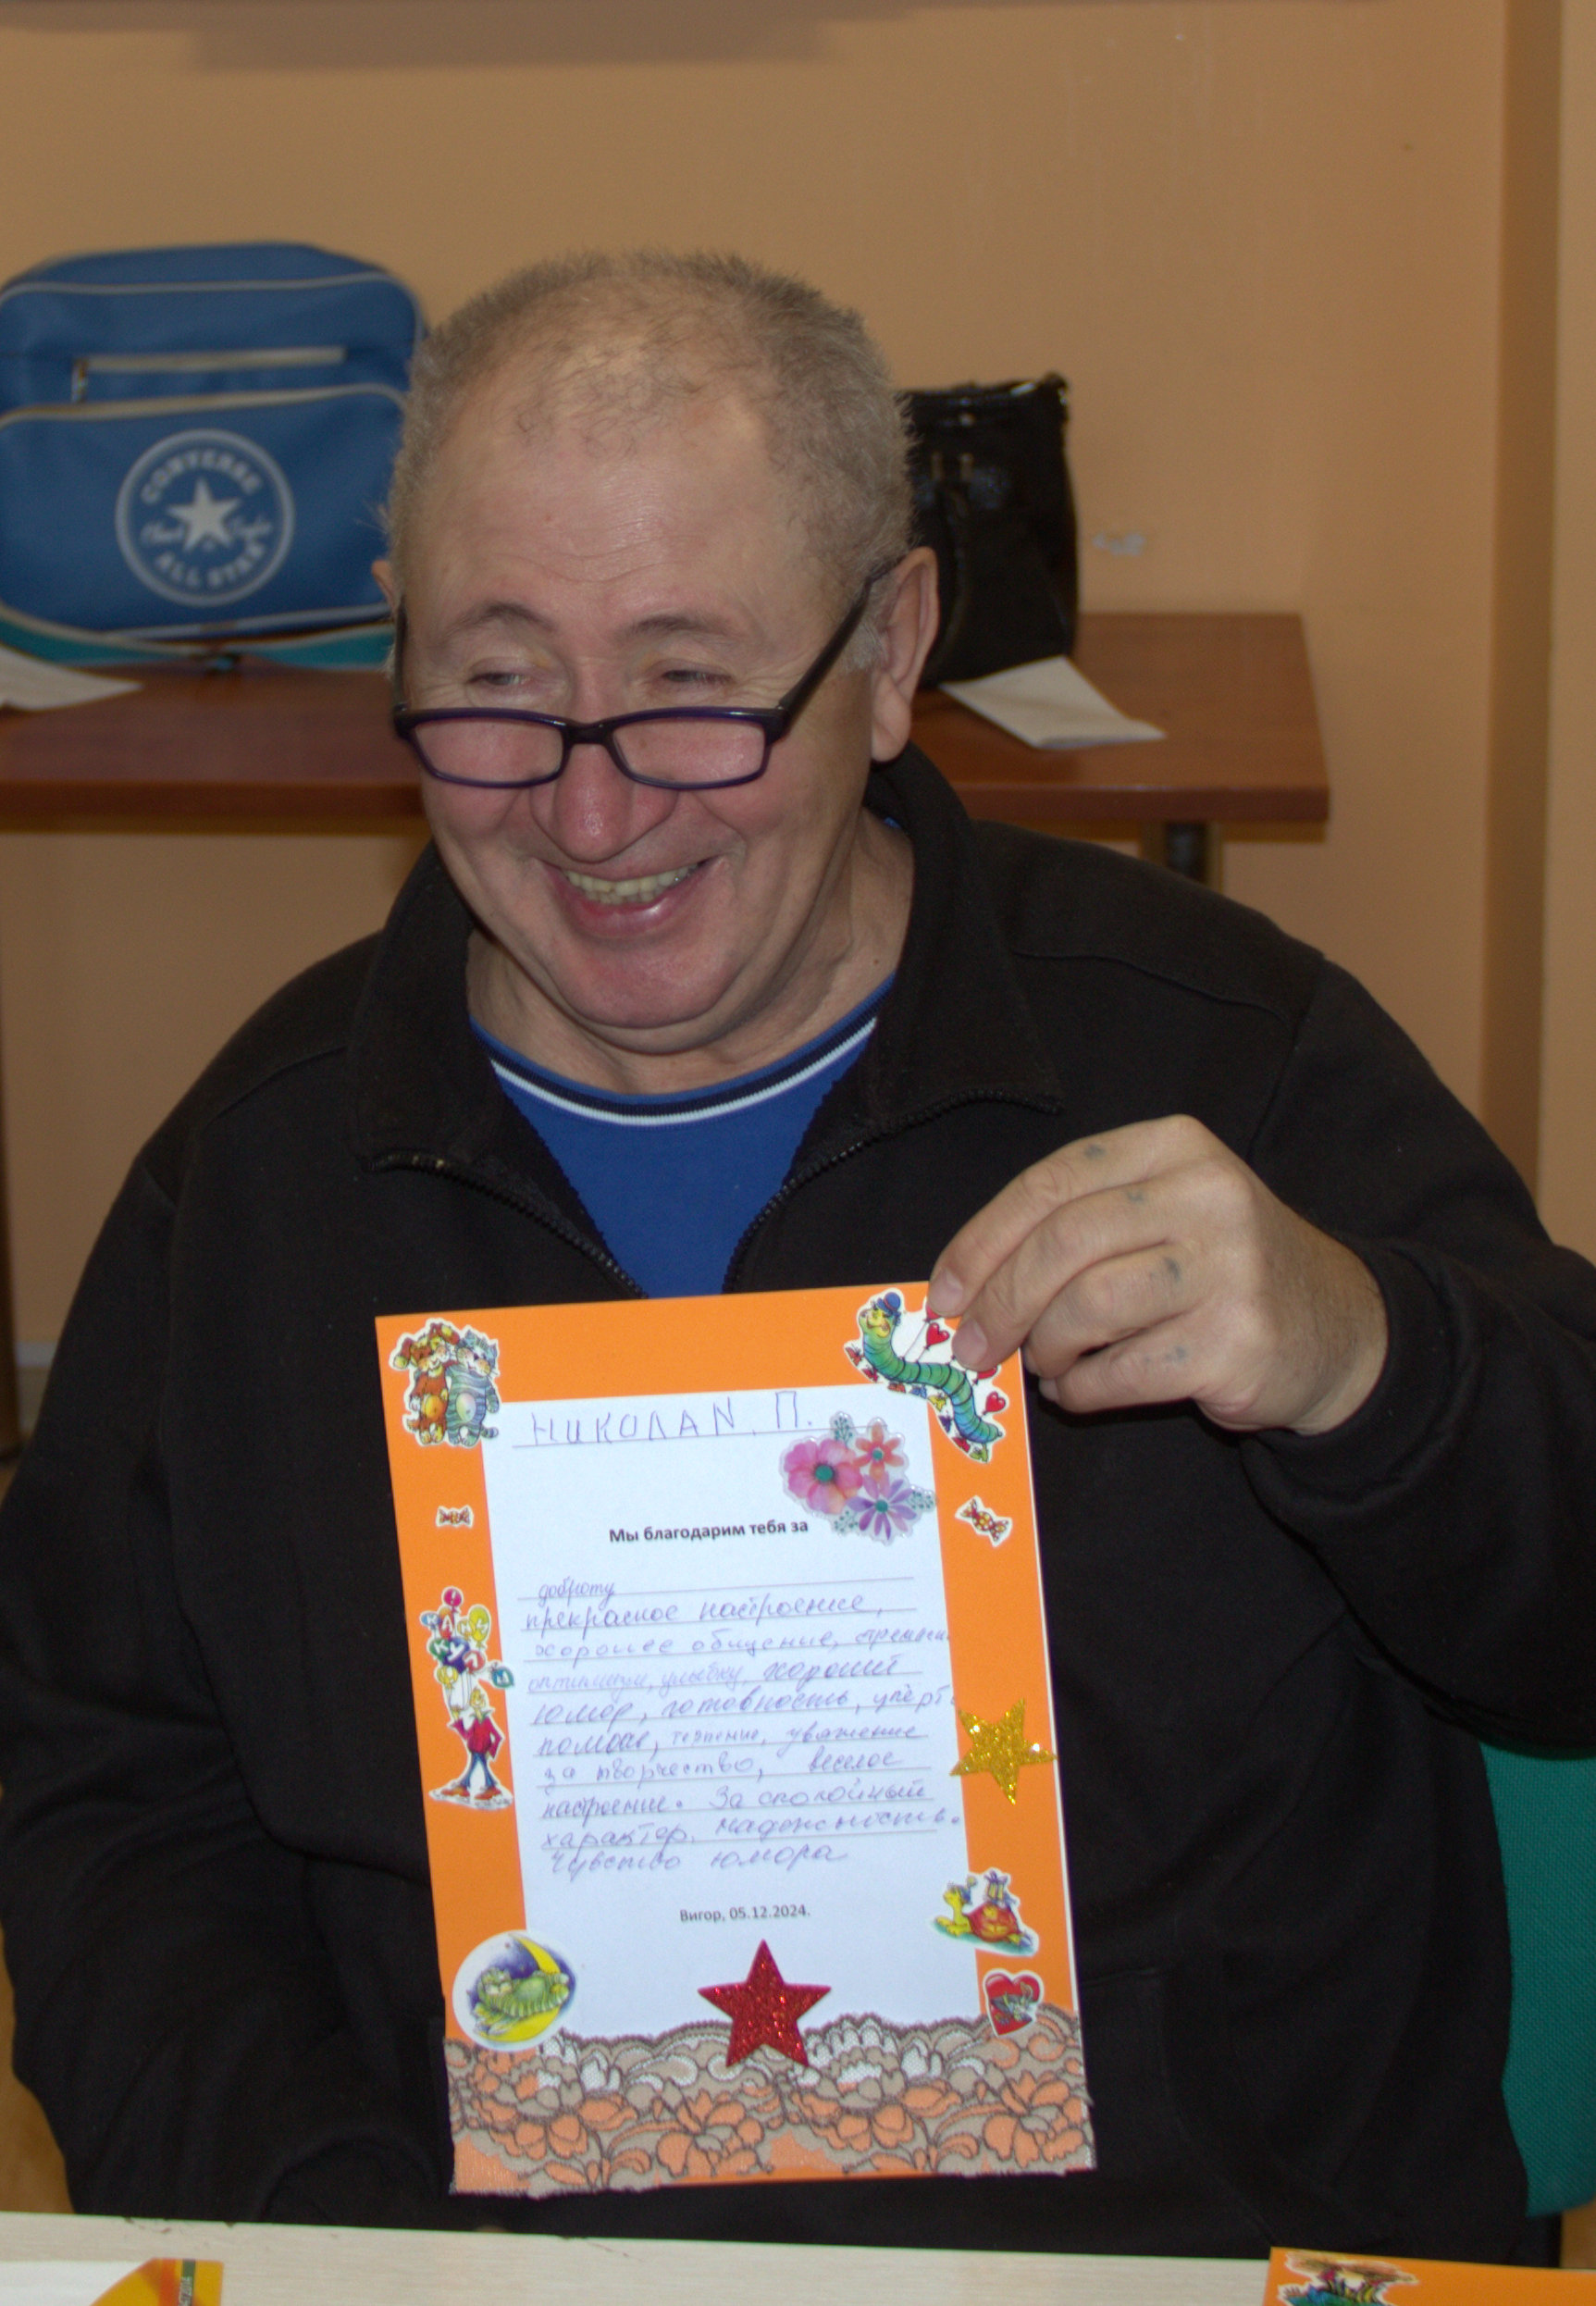 CONVERSE
ALL STAR
НИКОЛАЙ. П.
Мы благодарим тебя за
доброту
прекрасное настроение,
хорошее общение,
оптимизм, улыбку, хороший
юмор, готовность, упёрт
помощь, терпение, уважение
за творчество, веселое
настроение. За спокойный
характер. надежность.
Чувство юмора
Вигор, 05.12.2024.